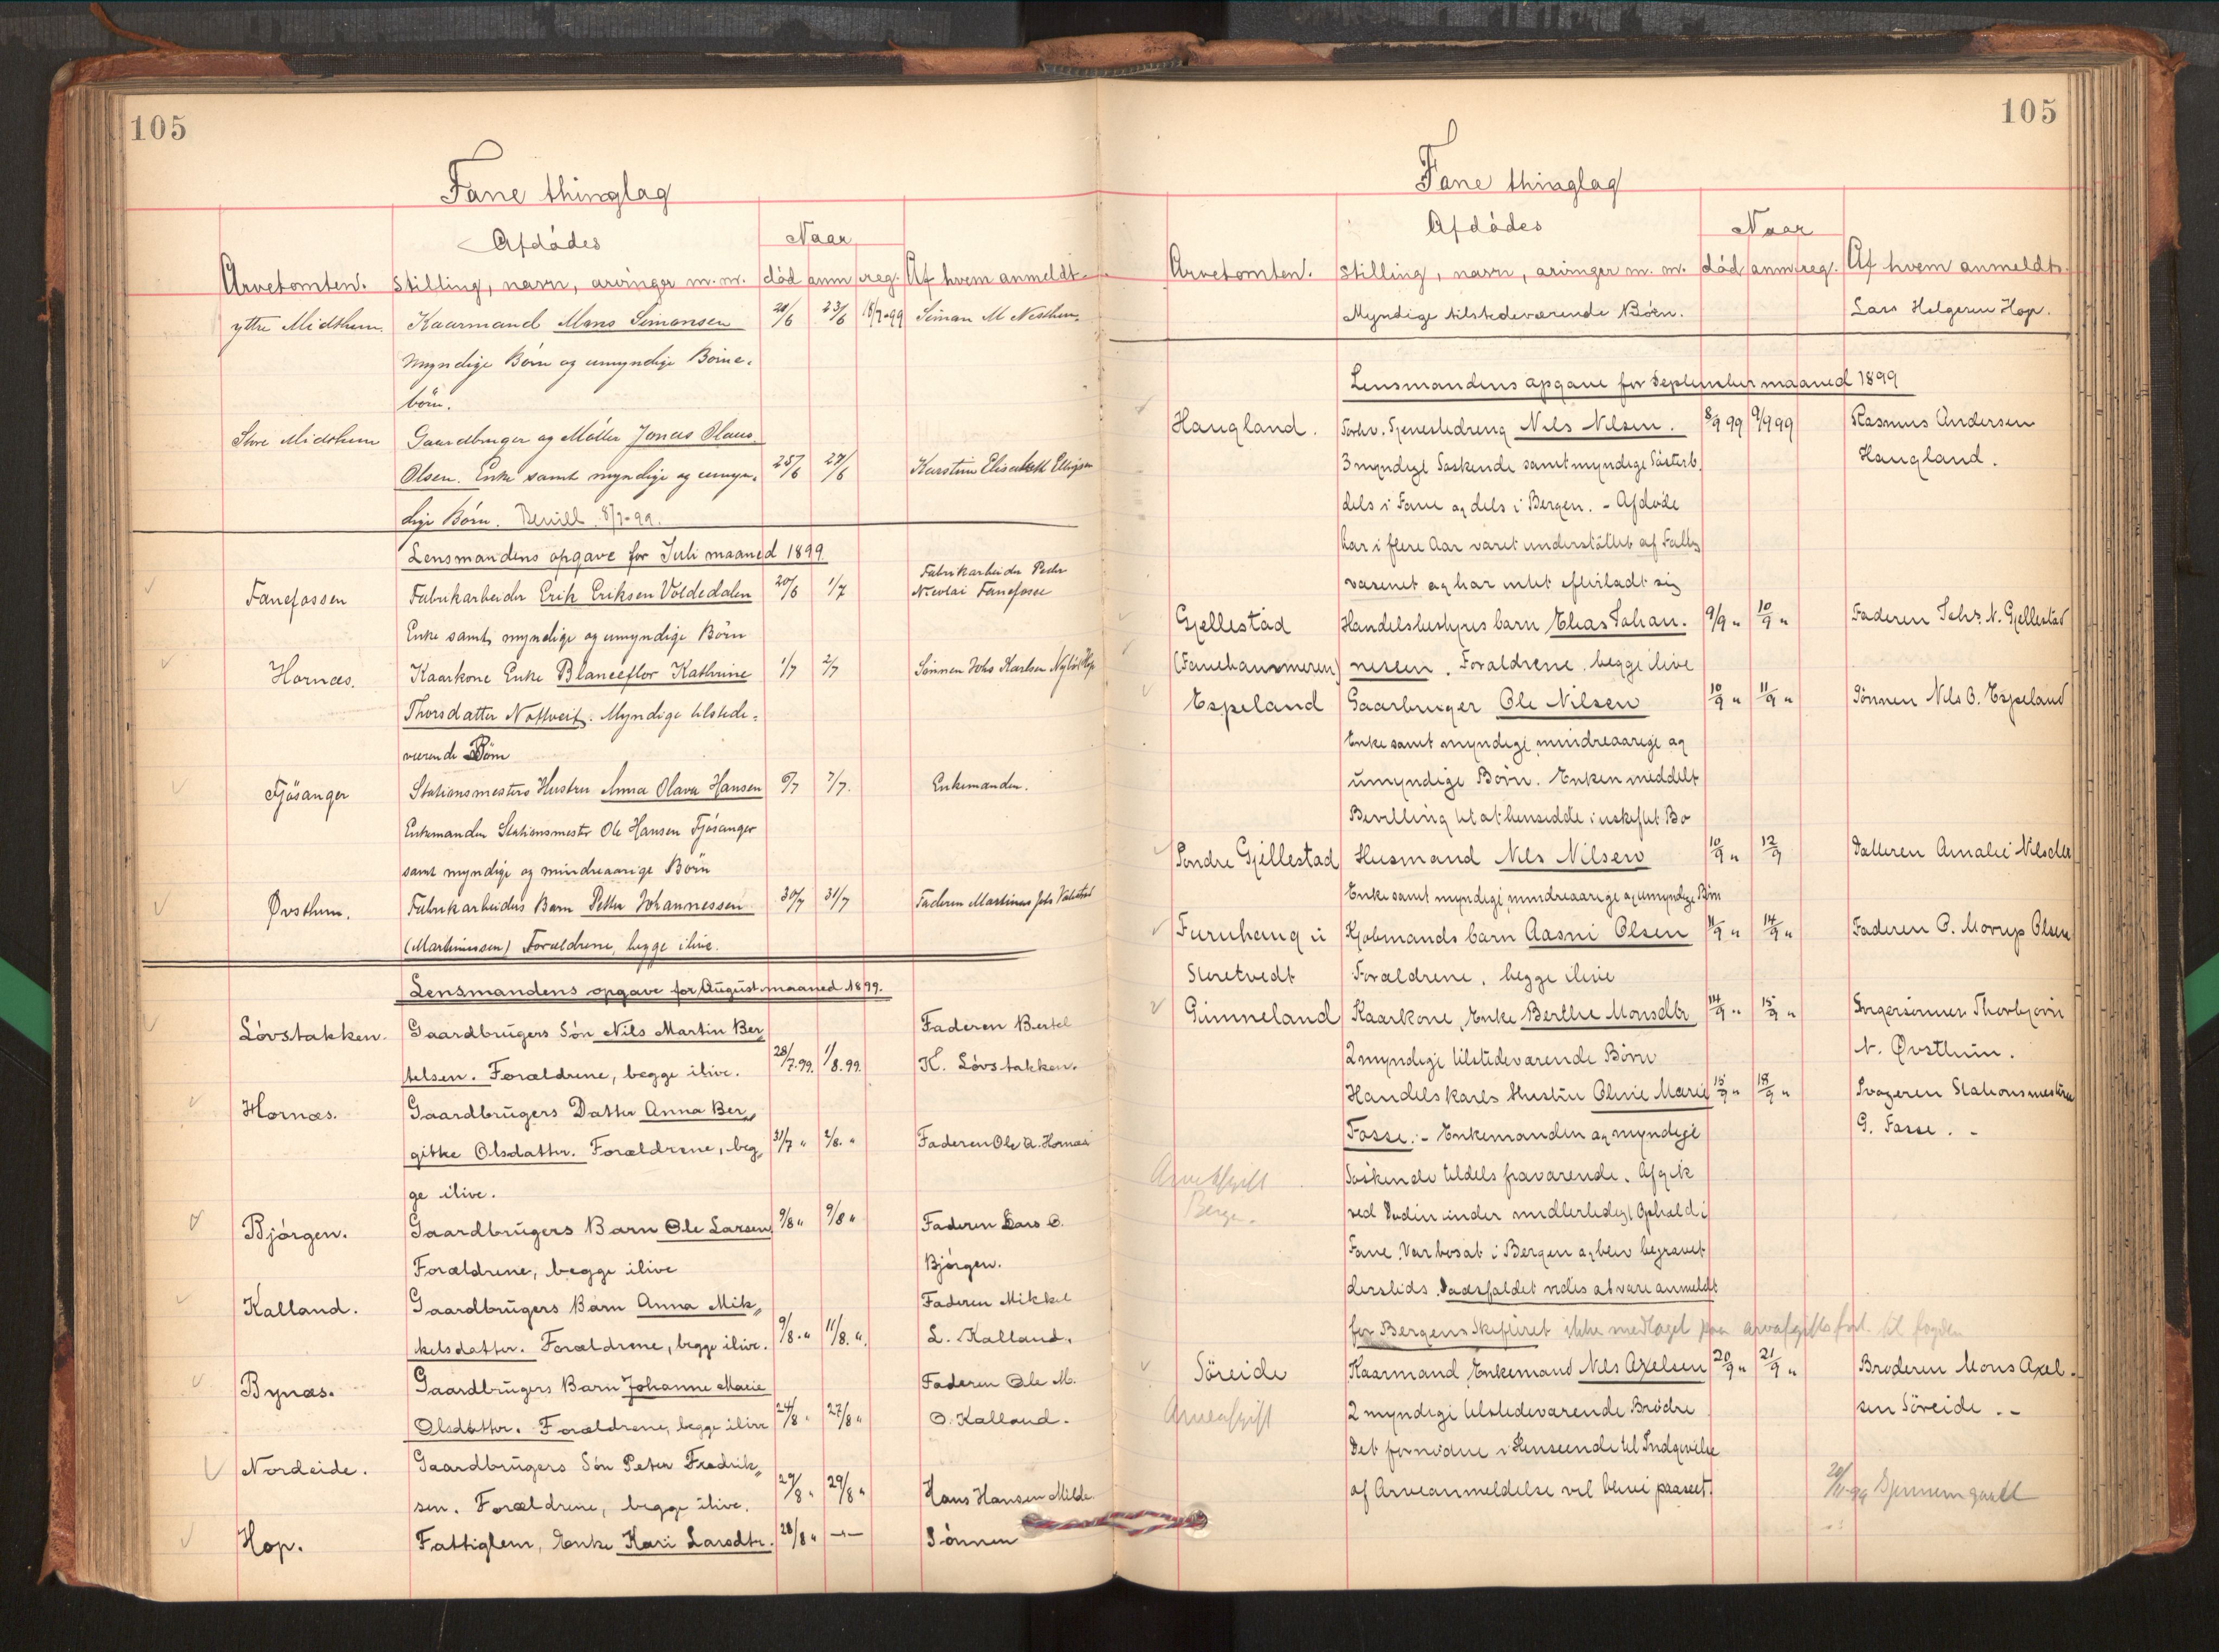 105
Fane thinglag
Afdödes
Naar
Arvetomten. Stilling, navn, arvinger m. m. död anm reg. Af hvem anmeldt.
yttre Midthun. Kaarmand Mons Simonsen 20/6 23/6 8/7-99 Simon M Nesthun.
myndige Börn og umyndige Börne-
börn.
Store Midthun Gaardbruger og Möller Jonas Olaus
Olsen. Enke samt myndige og umyn- 25/6 27/6 Karstine Elisabeth Ellingsen
dige Börn. Bevill. 8/7-99.
Lensmandens opgave for Juli maaned 1899.
Fabrikarbeider Peder
Fanefossen Fabrikarbeider Erik Eriksen Voldedalen 20/6 1/7 Nicolai Fanefosse
Enke samt myndige og umyndige Börn
Hornæs. Kaarkone Enke Blanceflor Kathrine 1/7 2/7 Sönnen Johs Karlsen Nylöi Hop
Thorsdatter Nattveit. Myndige tilstede-
værende Börn
Fjösanger Stationsmesters Hustru Anna Olava Hansen 6/7 7/7. Enkemanden.
Enkemanden Stationsmester Ole Hansen Fjösanger
samt myndige og mindreaarige Börn
Øvsthun. Fabrikarbeiders Barn Petter Johannessen 30/7 31/7 Faderen Martinus Johs
(Martinussen) Forældrene, begge ilive.
Lensmandens opgave for August maaned 1899.
Lövstakken. Gaardbrugers Sön Nils Martin Ber- Faderen Bertel
telsen. Forældrene, begge ilive. 28/7.99. 1/8.99. K. Lövstakken.
Hornæs. Gaardbrugers Datter Anna Ber-
gitke Olsdatter. Forældrene, beg- 31/7 " 2/8. " Faderen Ole A. Hornæs
ge ilive.
Björgen. Gaardbrugers Barn Ole Larsen 9/8 " 9/8 " Faderen Lars O.
Forældrene, begge ilive Björgen.
Kalland. Gaardbrugers Barn Anna Mik- Faderen Mikkel
kelsdatter. Forældrene, begge ilive. 9/8. " 11/8. " L. Kalland.
Bynæs. Gaardbrugers Barn Johanne Marie Faderen Ole M.
Olsdatter. Forældrene, begge ilive 24/8 " 27/8 " O. Kalland.
Nordeide. Gaardbrugers Sön Peter Fredrik-
sen. Forældrene, begge ilive. 29/8 " 29/8 " Hans Hansen Milde.
Hop. Fattiglem, Enke Kari Larsdtr. 28/8 " —"— Sönnen
105
Fane thinglag
Afdödes
Naar
Arvetomten. Stilling, navn, arvinger m. m. död anm. reg. Af hvem anmeldt.
Myndige tilstedeværende Börn. Lars Helgesen Hop.
Lensmandens opgave for September maaned 1899
Haugland. Forhv. Tjenestedreng Nils Nilsen. 8/9 99 9/9 99 Rasmus Andersen
3 myndige Söskende samt myndige Sösterb. Haugland.
dels i Fane og dels i Bergen. - Afdöde
har i flere Aar været understöttet af Fattig
væsenet og har intet efterladt sig
Gjellestad Handelsbestyres barn Elias Johan- 9/9 " 10/9 " Faderen Johs. N. Gjellestad
(Fanehammeren) nesen. Forældrene, begge ilive
Espeland Gaarbruger Ole Nilsen 10/9 " 11/9 " Sönnen Nils O. Espeland
Enke samt myndige mindreaarige og
umyndige Börn. Enken meddelt
Bevilling til at hensidde i uskiftet Bo
Söndre Gjellestad Husmand Nils Nilsen 10/9 " 12/9 Datteren Amalie Nilsdtr
Enke samt myndige, mindreaarige og umyndige Börn
Furuhaug i Kjobmands barn Aasni Olsen 11/9 " 14/9 " Faderen O. Morup Olsen
Steretvedt Forældrene, begge ilive
Gunneland Kaarkone, Enke Berthe Monsdtr 14/9 " 15/9 " Svigersönnen Thorbjörn
2 myndige tilstedeværende Börn N. Øvsthun.
Handelskarls Hustru Oline Marie 15/9 " 18/9 " Svogeren Stationsmester
Fosse. - Enkemanden og myndige G. Fosse. -
Arveafgift Söskende tildels fraværende. Afgik
Bergen. ved Döden under midlertidigt Ophold i
Fane. Var bosat i Bergen og blev begravet
dersteds. Dödsfaldet vides at være anmeldt
for Bergens Skifteret ikke medtaget paa arvafgiftsfort. til fogden
Söreide Kaarmand Enkemand Nils Axelsen 20/9 " 21/9 " Broderen Mons Axel-
Arveafgift 2 myndige tilstedeværende Brödre sen Söreide. -
Det fornödne i Henseende til Indgivelse
af Arveanmeldelse vil blive paaseet. 20/11-99 Gjennemgaaet